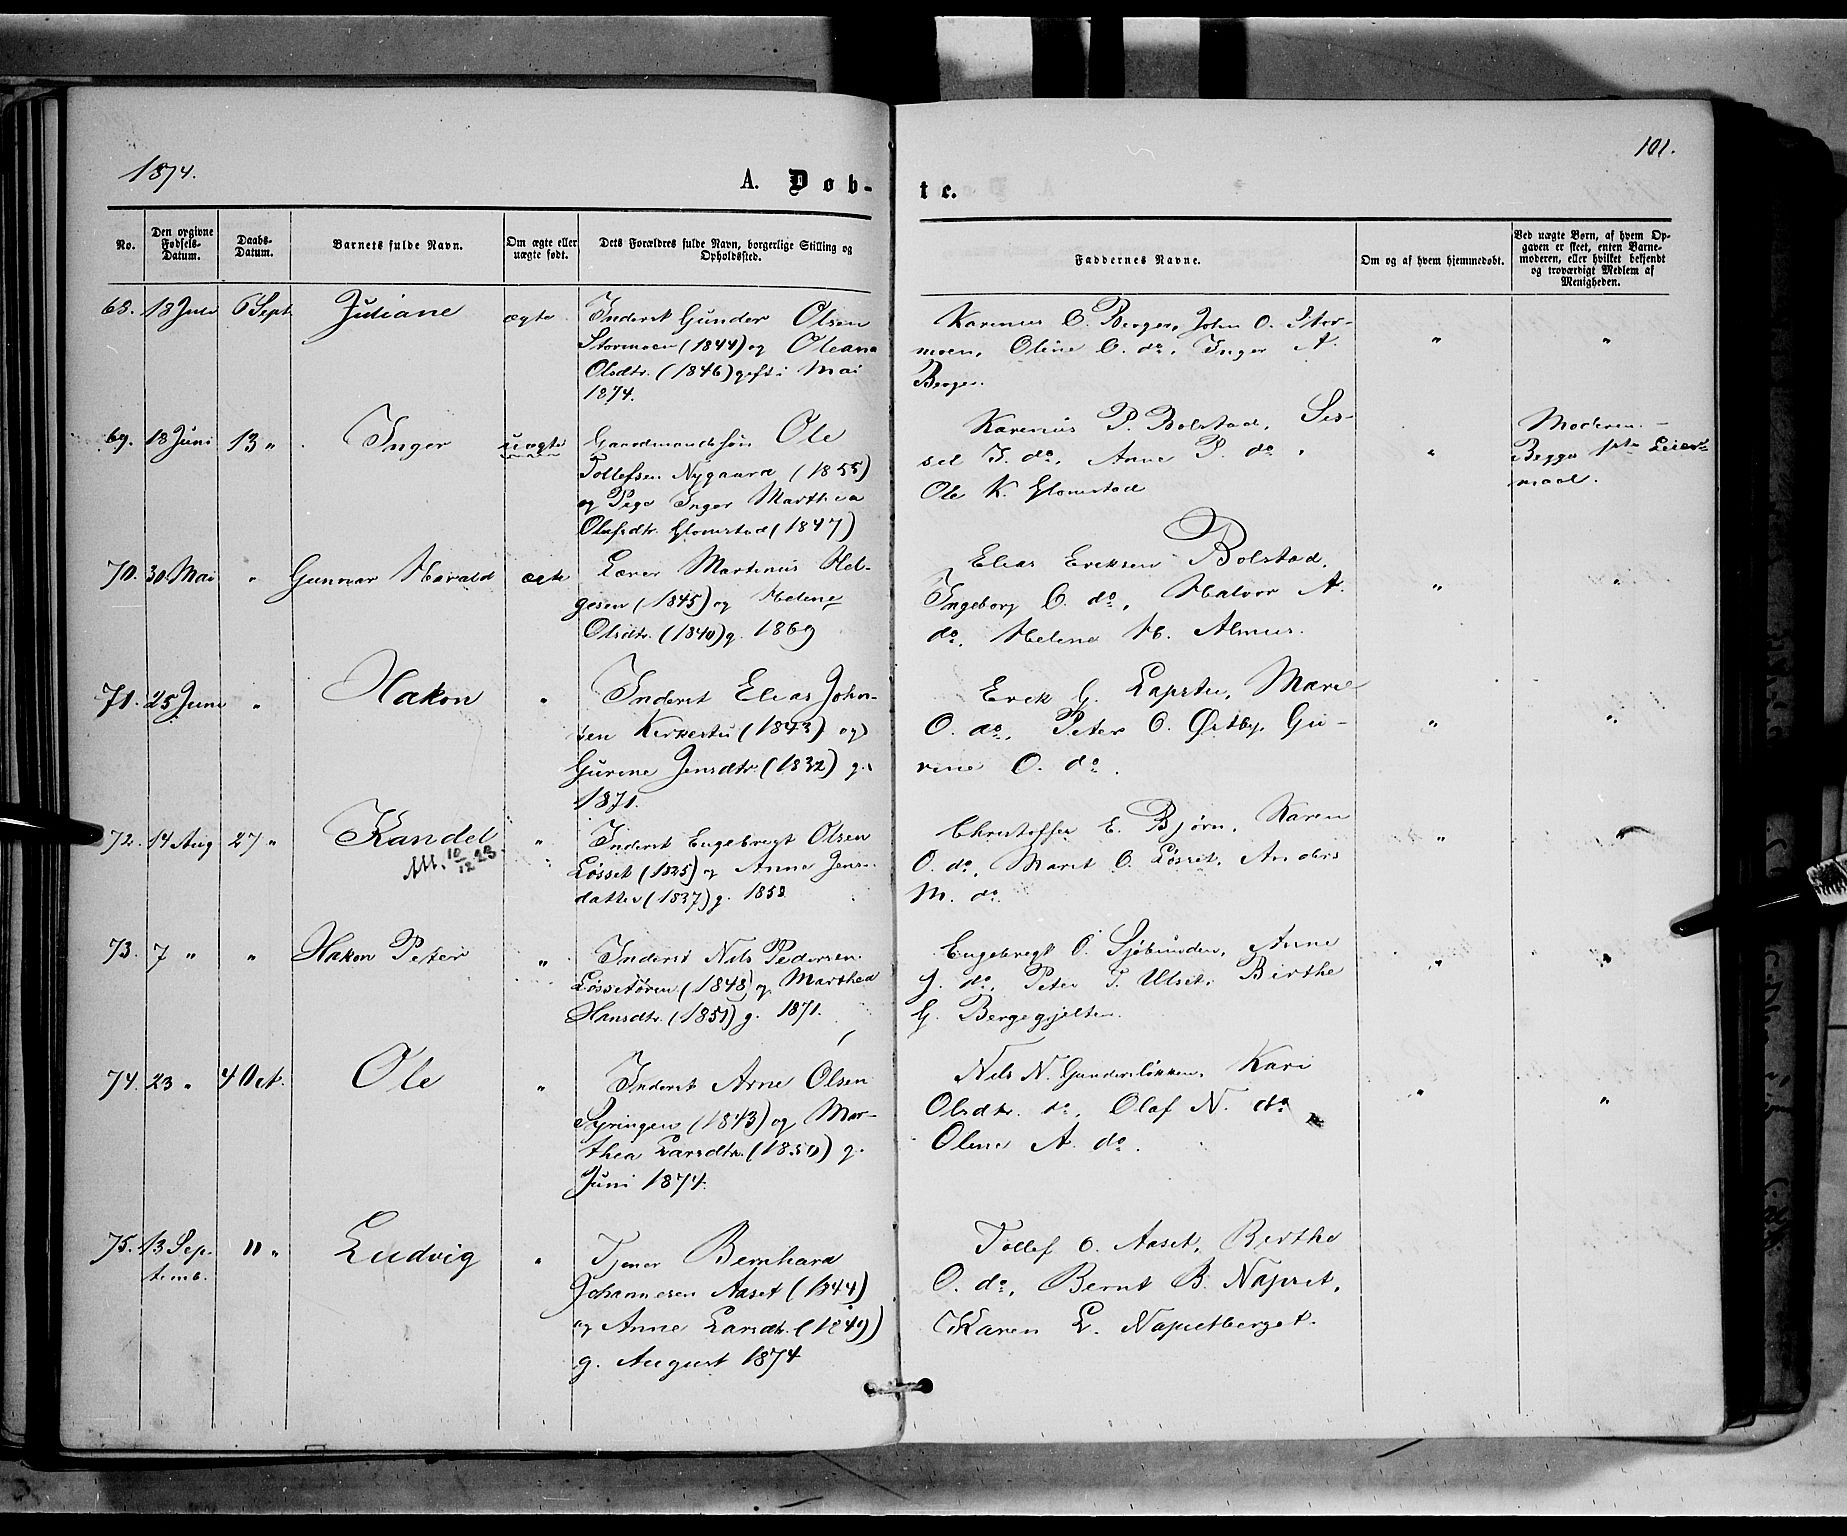 1874.
101.
A. Døb-
te.
No.
Den opgivne Fødsels-Datum.
Daabs-Datum.
Barnets fulde Navn.
Om ægte eller uægte født.
Dets Forældres fulde Navn, borgerlige Stilling og Opholdssted.
Faddernes Navne.
Om og af hvem hjemmedøbt.
Ved uægte Børn, af hvem Opgaven er skeet, enten Barnemoderen, eller hvilket bekjendt og troværdigt Medlem af Menigheden.
68. 18 Juli 6 Sept. Juliane ægte Inderst Gunder Olsen
Stormoen (1844) og Oleana
Olsdtr. (1846) gift i Mai
1874.
Karenus O. Berger, John O. Stor-
moen, Oline O. do, Inger A.
Berger.
" "
69. 18 Juni 13 " Inger uægte Gaardmandssøn Ole
Tollefsen Nygaard (1855)
og Pige Inger Marthea
Olufsdtr. Glomstad (1847)
Karenus P. Bolstad, Sis-
sel I. do, Anne P. do,
Ole K. Glomstad
"
Moderen.-
Begges 1ste Leier-
maal.
70. 30 Mai " Gunnar Harald ægte Lærer Martinus Hel-
gesen (1845) og Helene
Olsdtr. (1840) g. 1869
Elias Eriksen Bolstad,
Ingeborg O. do, Halvor A.
do, Helene H. Almus.
" "
71. 25 Juni " Hakon " Inderst Elias John-
sen Kirkestu (1843) og
Gurine Jensdtr. (1832) g.
1871.
Erik G. Lapstu, Marie
O. do, Peter O. Østby, Gu-
rine O. do.
" "
72. 14 Aug 27 " Randel " Inderst Engebregt Olsen
Att. 10/12 23.
Løsset (1825) og Anne Jens-
datter (1837) g. 1858
Christoffer E. Bjørn, Karen
O. do, Marit O. Løsset, Anders
M. do.
" "
73. 7 " " Hakon Peter " Inderst Nils Pedersen
Løssetøren (1848) og Marthea
Hansdtr. (1851) g. 1871.
Engebregt O. Sjøbunden, Anne
J. do, Peter T. Ulset, Birthe
G. Bergegjelten.
" "
74. 23 " 4 Oct. Ole " Inderst Arne Olsen
Syringen (1843) og Mar-
thea Larsdtr. (1850) g.
Juni 1874.
Nils N. Gundersløkken, Kari
Olsdtr. do, Olaf N. do
Oline A. do.
" "
75. 13 Sep- 11 " Ludvig " Tjener Bernhard
temb.
Johannesen Aaset (1844)
og Anne Larsdtr. (1849)
g. August 1874
Tollef O. Aaset, Berthe
O. do, Bernt B. Napset,
Karen L. Napsetberget.